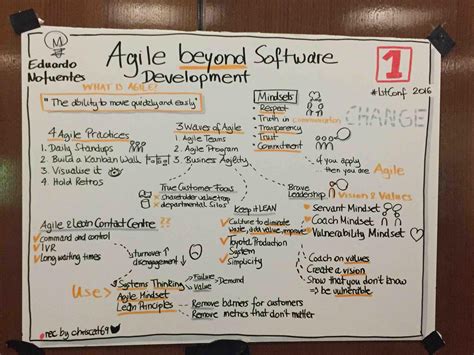 Eduardo
Nofuentes
Agile beyond Software
Development
1
#LstConf 2016
WHAT IS AGILE?
"The ability to move quickly and easily"
Mindsets
• Respect
• Truth in communication
• Transparency
• Trust
• Commitment
CHANGE
if you apply
then you are Agile
4 Agile Practices
1. Daily Standups
2. Build a Kanban Wall
3. Visualise it
4. Hold Retros
3 Waves of Agile
1. Agile Teams
2. Agile Program
3. Business Agility
True Customer Focus
Shareholder value trap
departmental Silos
Keep it LEAN
Culture to eliminate
waste, add value, improve
Toyota Production
System
Simplicity
Brave
Leadership
Vision & Values
Servant Mindset
Coach Mindset
Vulnerability Mindset
Coach on values
Create a vision
Show that you don't know
=> be vulnerable
Agile & Lean Contact Centre ??
Command and control
IVR
Long waiting times
turnover ↑
disengagement ↓
Use>
Systems Thinking
Agile Mindset
Lean Principles
Failure
Value
Demand
Remove barriers for customers
Remove metrics that don't matter
rec by chriscat69